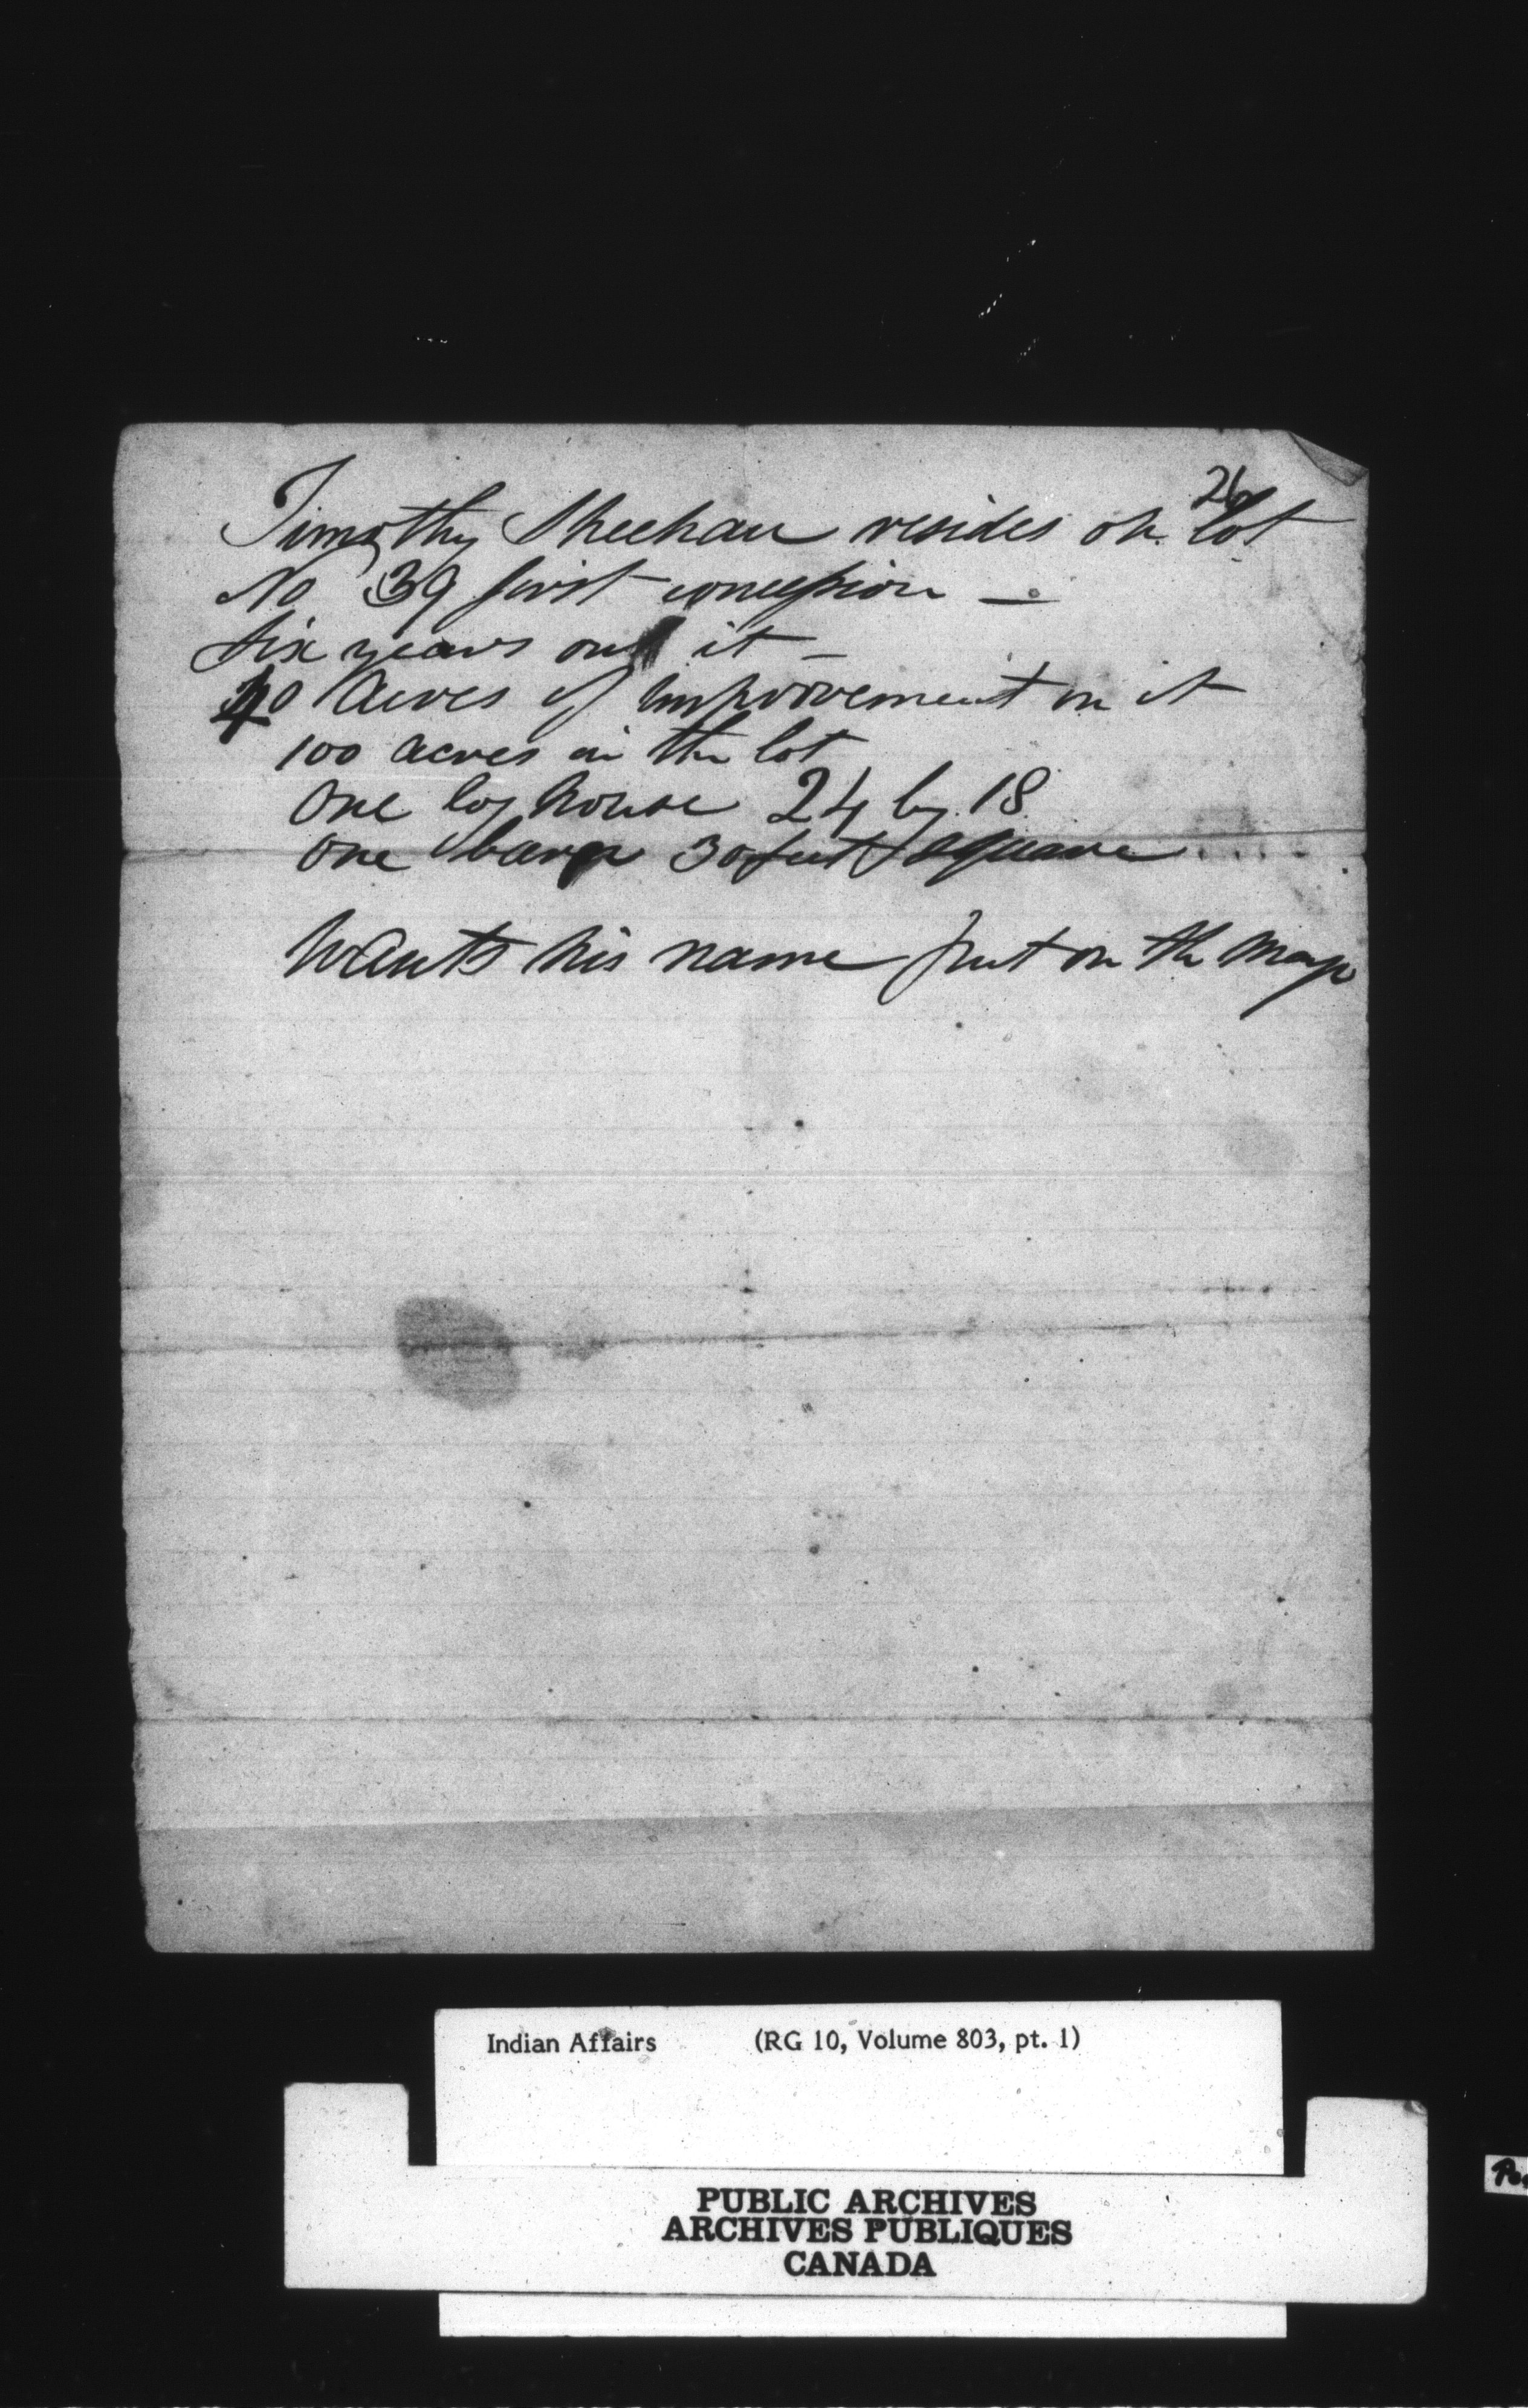 26
Timothy Sheehan resides on lot
No 39 first concession —
six years on it —
40 acres of improvement on it
100 acres in the lot
One log house 24 by 18
One barn 30 feet square
Wants his name put on the map
Indian Affairs (RG 10, Volume 803, pt. 1)
PUBLIC ARCHIVES
ARCHIVES PUBLIQUES
CANADA